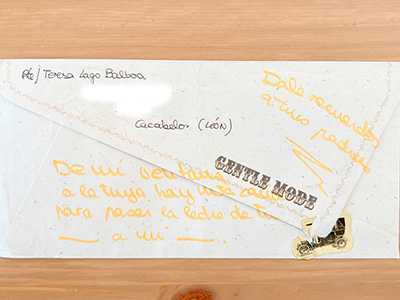 Rte/ Teresa Lago Balboa
Cacabelos (LEÓN)
Dale recuerdos
a tus padres
GENTLE MODE
De mi ventana
a la tuya hay una
para pasar la leche de tu
a mi .